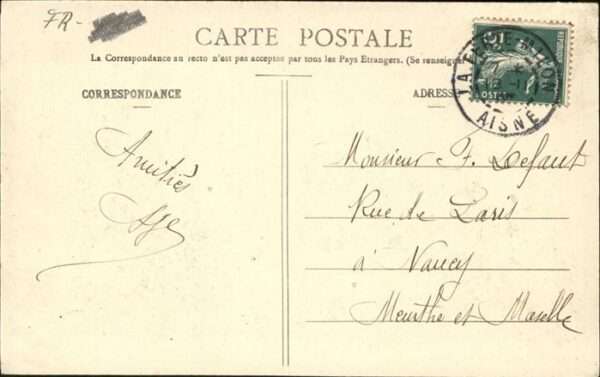 FR-
CARTE POSTALE
La Correspondance au recto n'est pas acceptée par tous les Pays Etrangers. (Se renseigner
CORRESPONDANCE
ADRESSE
LA FERTÉ-MILON
AISNE
Amitiés
Monsieur F. Defaut
Rue de Paris
à Nancy
Meurthe et Moselle